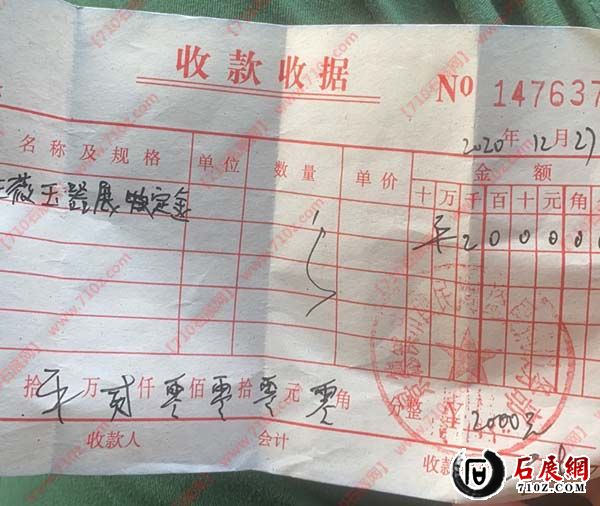 收款收据
No 147637
2020年12月27
名称及规格 单位 数量 单价 金额
十万千百十元角
薇玉器展收定金 200000
拾 万贰仟零佰零拾零元零角 分整 ¥2000元
收款人 会计 收款
【710石展网】www.710z.com
石展網
710Z.COM